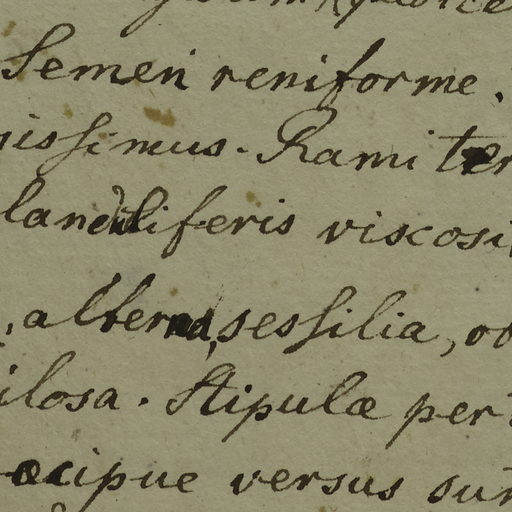 Semen reniforme.
issimus. Rami ter
landuliferis viscosi
, alterna, sessilia, o
ilosa. Stipulæ per
æcipue versus su